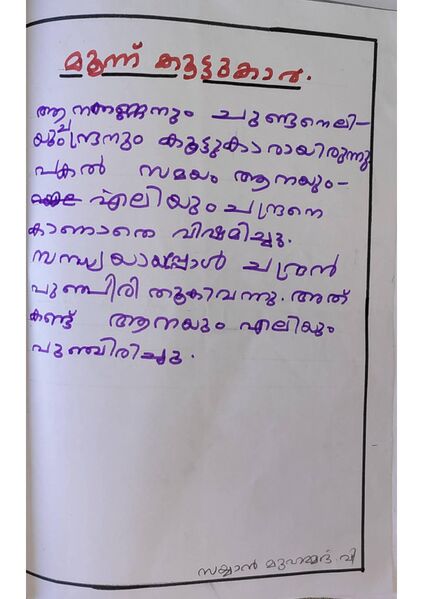 മൂന്ന് കൂട്ടുകാർ.
ആനണ്ണനും ചുണ്ടനെലി-
യും ചന്ദ്രനും കൂട്ടുകാരായിരുന്നു
പകൽ സമയം ആനയും-
എലിയും ചന്ദ്രനെ
കാണാതെ വിഷമിച്ചു.
സന്ധ്യയായപ്പോൾ ചന്ദ്രൻ
പുഞ്ചിരി തൂകിവന്നു. അത്
കണ്ട് ആനയും എലിയും
പുഞ്ചിരിച്ചു.
സയ്യാൻ മുഹമ്മദ്. വി